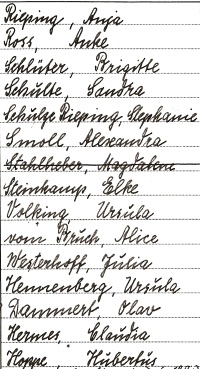 Rieping, Anja
Ross, Anke
Schlüter, Brigitte
Schulte, Sandra
Schulze Rieping, Stephanie
Smoll, Alexandra
Stahlheber, Magdalene
Steinkamp, Elke
Volking Ursula
vom Bruch, Alice
Westerhoff, Julia
Hennenberg, Ursula
Dammert, Olav
Hermes, Claudia
Hoppe, Hubertus